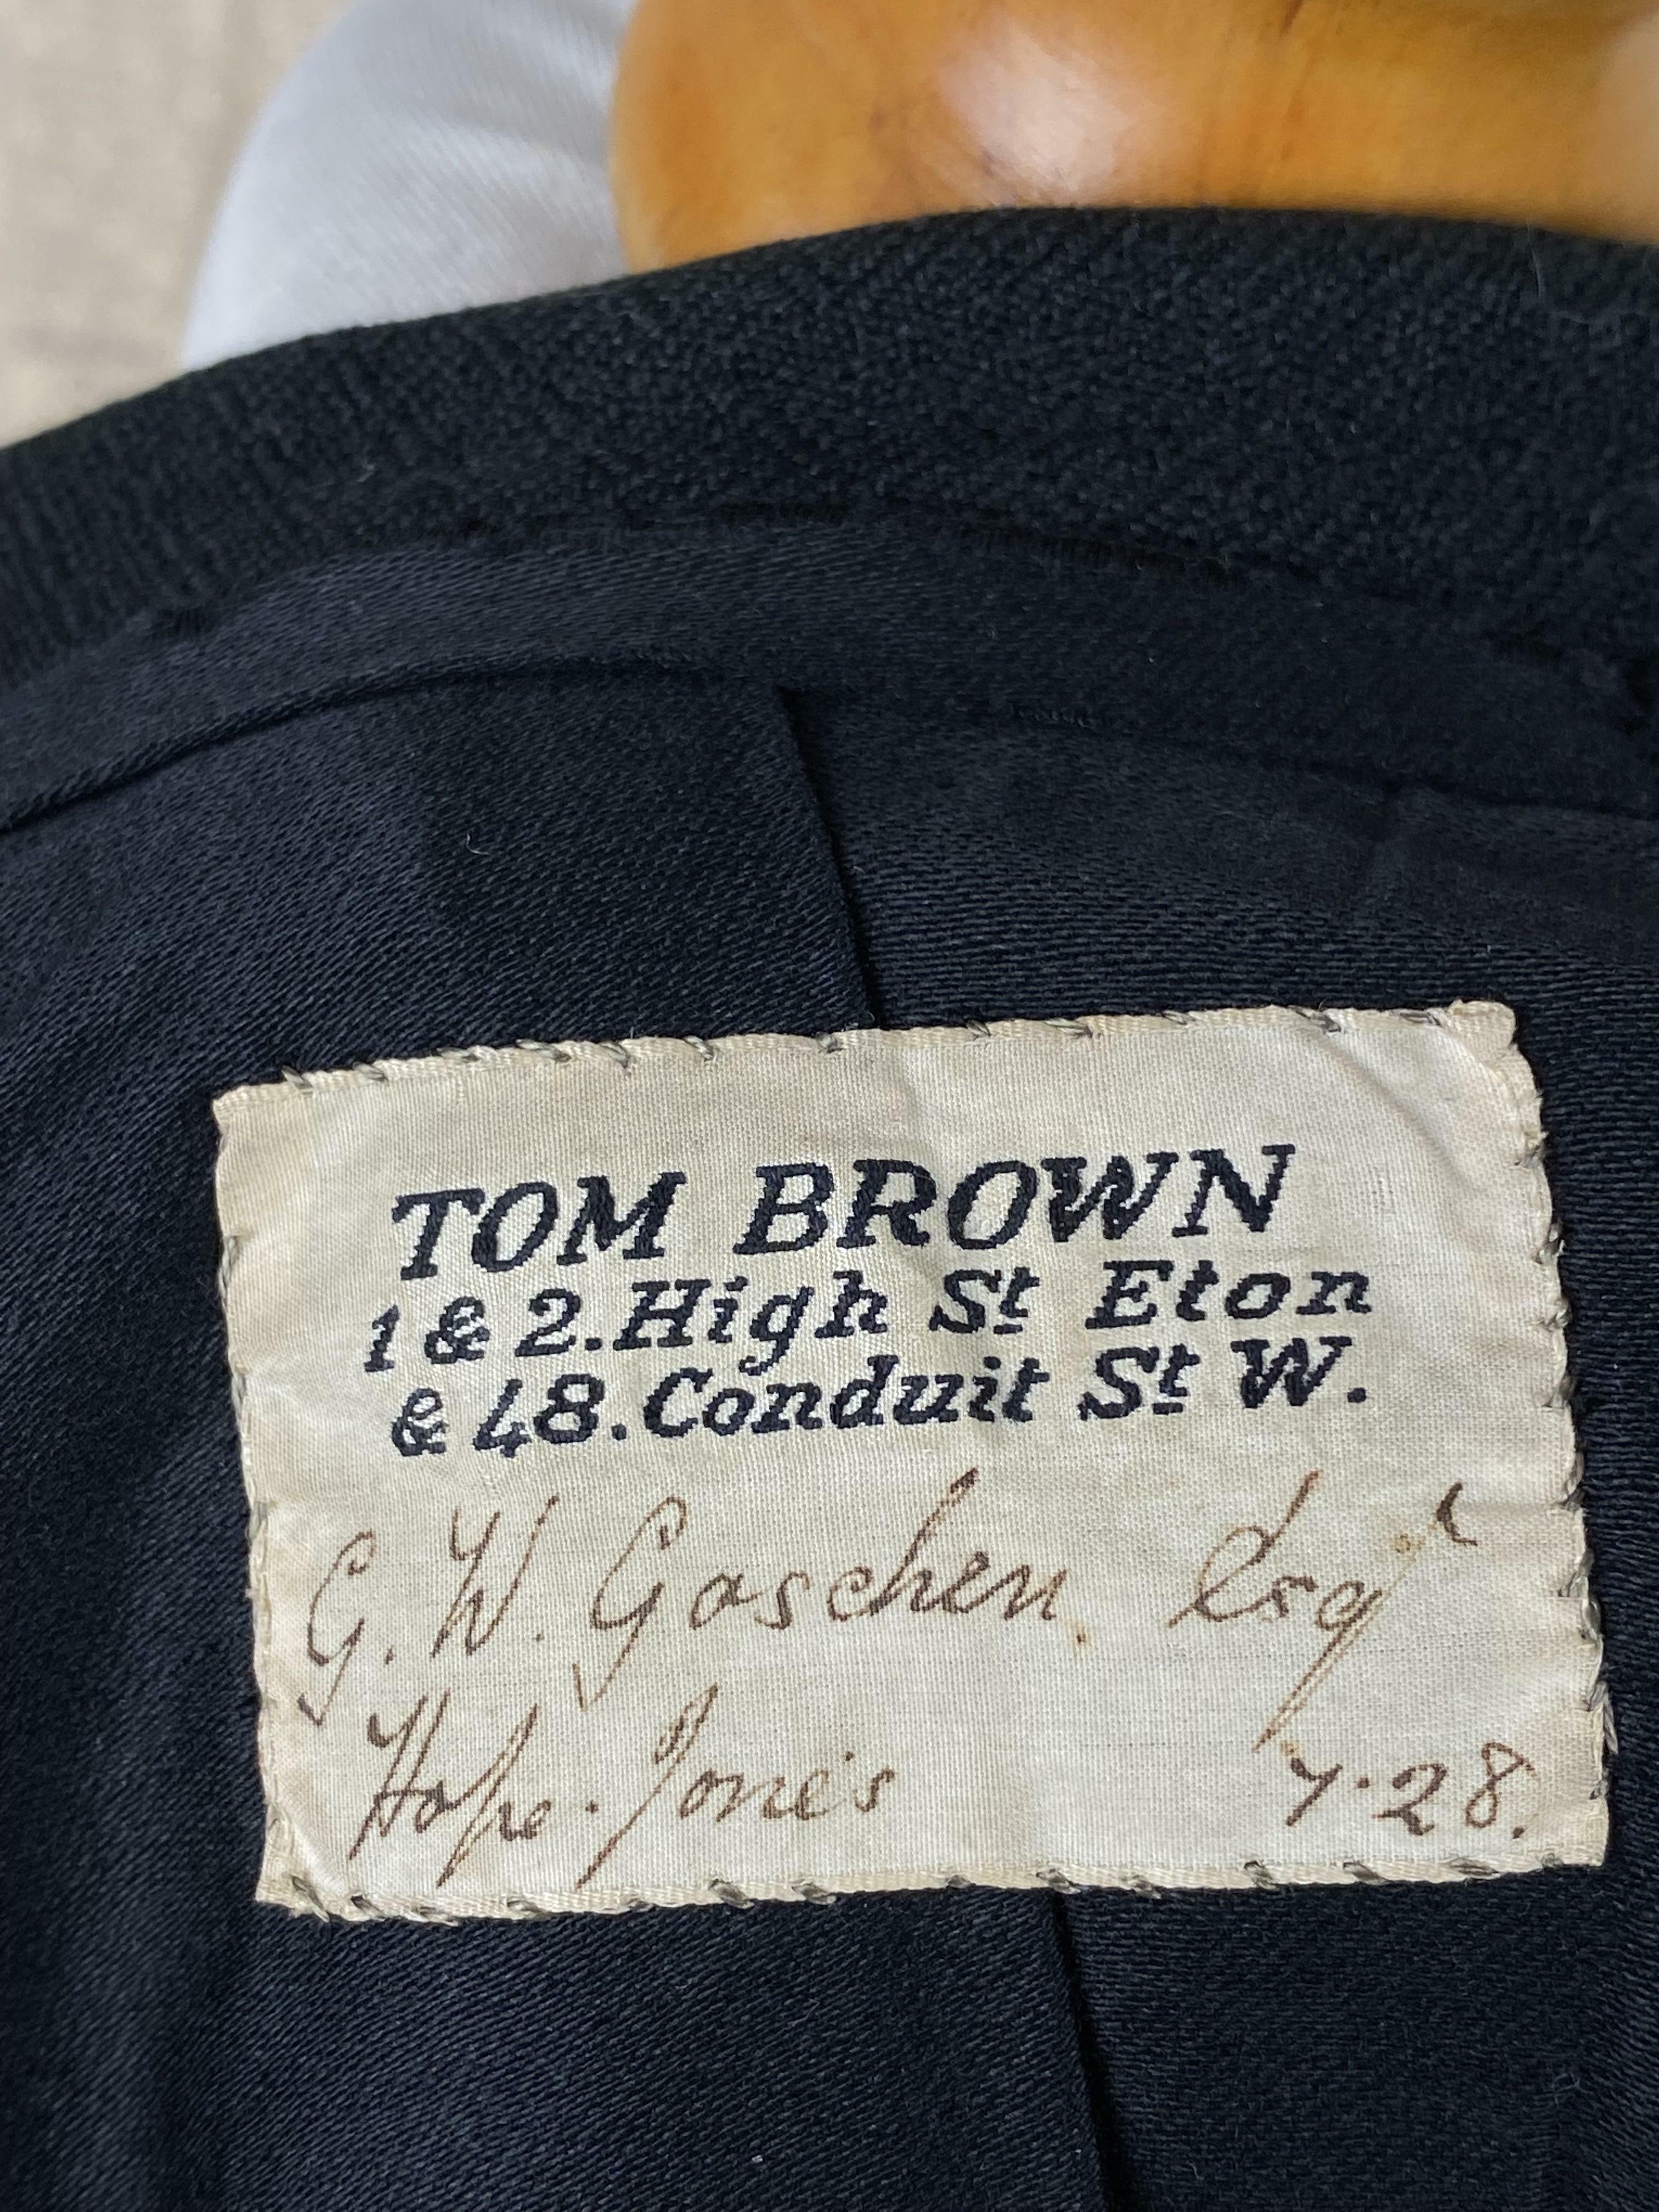 TOM BROWN
1 & 2. High St Eton
& 48. Conduit St W.
G. W. Goschen Esqr
Hope-Jones 7.28.